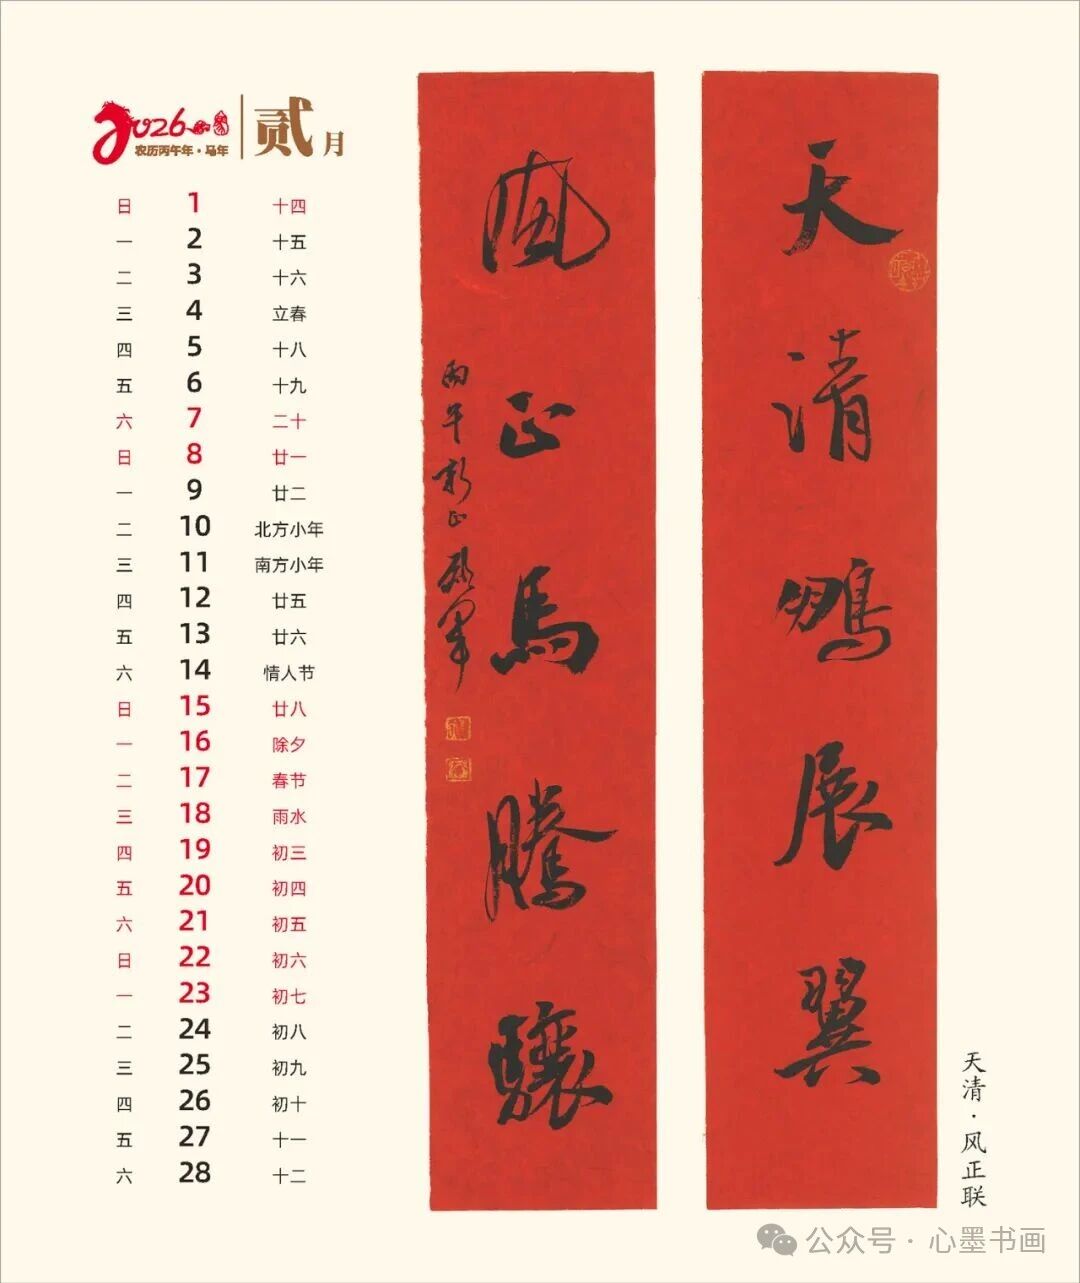 2026
农历丙午年·马年
贰月
日 1 十四
一 2 十五
二 3 十六
三 4 立春
四 5 十八
五 6 十九
六 7 二十
日 8 廿一
一 9 廿二
二 10 北方小年
三 11 南方小年
四 12 廿五
五 13 廿六
六 14 情人节
日 15 廿八
一 16 除夕
二 17 春节
三 18 雨水
四 19 初三
五 20 初四
六 21 初五
日 22 初六
一 23 初七
二 24 初八
三 25 初九
四 26 初十
五 27 十一
六 28 十二
天清鵬展翼
風正馬騰驤
丙午新正
天清·风正联
公众号·心墨书画